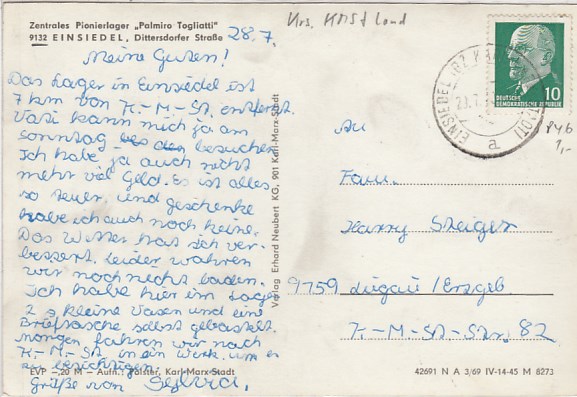 Zentrales Pionierlager „Palmiro Togliatti"
9132 EINSIEDEL, Dittersdorfer Straße 28.7.
Krs. KMSt Land
Meine Guten!
Das Lager in Einsiedel ist
7 km von K-M-St. entfernt.
Vati kann mich ja am
sonntag besuchen.
Ich habe ja auch nicht
mehr viel Geld. Es ist alles
so teuer und geschenke
habe ich auch noch keine.
Das Wetter hat sich ver-
bessert. leider wahren
wir noch nicht baden.
Ich habe hier im Lager
2 kleine Vasen und eine
Brieftasche selbst gebastelt.
morgen fahren wir nach
K-M-St. in ein Werk. um es
zu besichtigen.
Grüße von Sylvia.
EVP -,20 M – Aufn.: Polster, Karl-Marx-Stadt
Verlag Erhard Neubert KG, 901 Karl-Marx-Stadt
DEUTSCHE
DEMOKRATISCHE REPUBLIK
10
EINSIEDEL
a
846
1,-
An
Fam.
Harry Steiger
9159 Lugau/Erzgeb
K-M-St-Str. 82
42691 N A 3/69 IV-14-45 M 8273